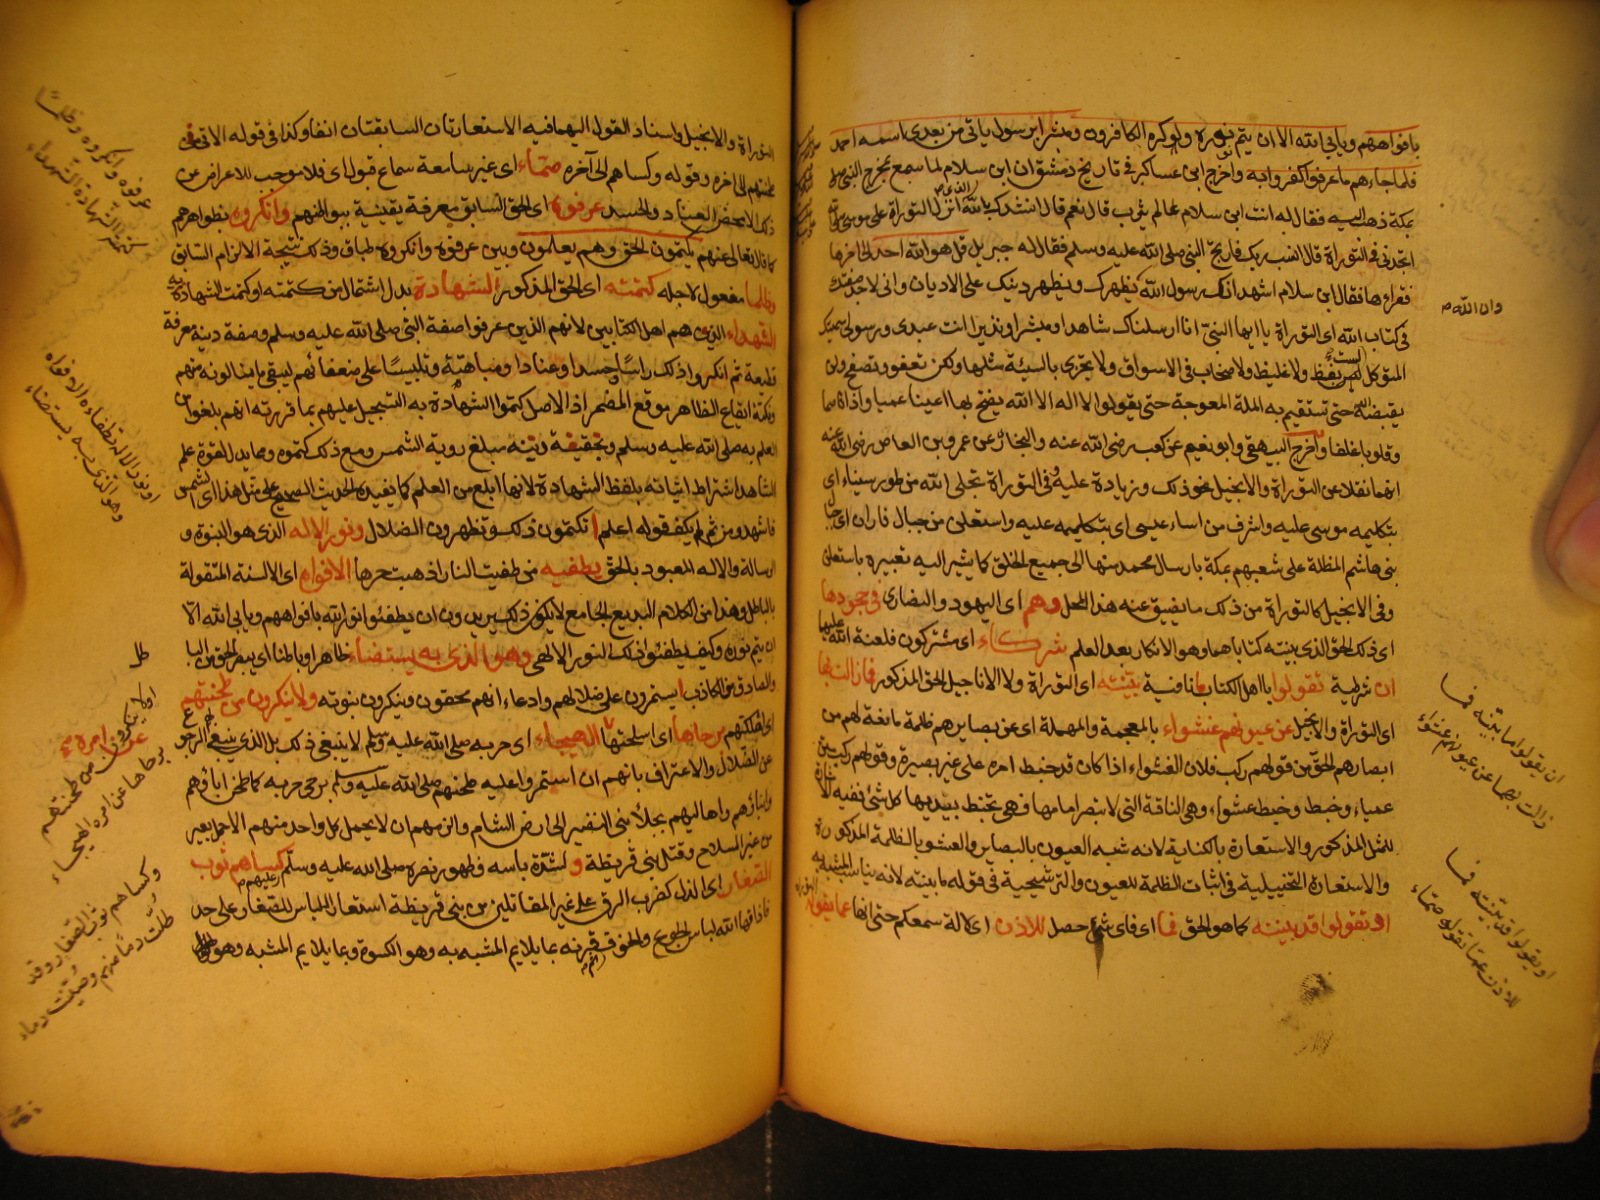 بافواههم ويابي الله الا ان يتم نوره ولو كره الكافرون ومبشرا برسول ياتي من بعدي اسمه احمد
فلما جاءهم ما عرفوا كفروا به واخرج ابن عساكر في تاريخ دمشق ان ابن سلام لما سمع بمخرج النبي صلعم
بمكة ذهب اليه فقال له انت ابن سلام عالم يثرب قال نعم قال انشدك بالله الذي انزل التوراة على موسى
اتجدني في التوراة قال انسب ربك فارتج النبي صلى الله عليه وسلم فقال له جبريل قل هو الله احد الى اخرها
فقراءها فقال ابن سلام اشهد انك رسول الله مظهرك ويظهر دينك على الاديان واني لاجد صفتك
وان الله
في كتاب الله اي التوراة يا ايها النبي انا ارسلناك شاهدا ومبشرا ونذيرا انت عبدي ورسولي سميتك
المتوكل ليس بفظ ولا غليظ ولا صخاب في الاسواق ولا يجزي بالسيئة مثلها ولكن تعفو وتصفح ولن
يقبضه الله حتى تستقيم به الملة المعوجة حتى يقولوا لا اله الا الله يفتح بها اعينا عميا واذانا صما
وقلوبا غلفا واخرج البيهقي وابو نعيم عن كعب رضي الله عنه والبخاري عن عمرو بن العاص رضي الله عنه
انهما نقلا عن التوراة والانجيل نحو ذلك وزيادة عليه وفي التوراة تجلى الله من طور سيناء اي
بتكليمه موسى عليه واشرف من اساعير عيسى اي بتكليمه عليه واستعلن من جبال فاران اي جبال
بني هاشم المظلة على شعبهم بمكة بارسال محمد منها الى جميع الخلق كما يشير اليه تعبيره باستعلن
وفي الانجيل كالتوراة من ذلك ما يضيق عنه هذا المحل وهم اي اليهود والنصارى في جحودها
اي ذلك الحق الذي بينته كتاباهما وهو الانكار بعد العلم شركاء اي مشتركون فلعنة الله عليهما
ان شرطية تقولوا يا اهل الكتاب ما نافية بينته اي التوراة ولا الاناجيل الحق المذكور فما زالت بها
اي التوراة والانجيل عن عيونهم غشواء بالمعجمة والمهملة اي عن بصايرهم ظلمة مانعة لهم من
ابصارهم الحق من قولهم ركب فلان الغشواء اذا كان قد خبط امره على غير بصيرة وقولهم ركب متن
عمياء وخبط وخبط عشواء وهي الناقة التي لا تبصر امامها فهي تخبط بيديها كل شئ ففيه
للمثل المذكور والاستعارة بالكناية لانه شبه العيون بالبصاير والعشو بالظلمة المذكورة
والاستعارة التخييلية في اثبات الظلمة للعيون والترشيحية في قوله ما بينته لانه يناسب المشبه به
او تقولوا قد بينته كما هو الحق فما اي فاي شئ حصل للاذن اي لالة سمعكم حتى انها عما يقوله
ان يقولوا ما بينته فما
زالت بها عن عيونهم غشواء
او يقولوا قد بينته فما
للاذن عما تقوله صماء
التوراة والانجيل واسناد القول اليهما فيه الاستعارتان السابقتان انفا وكذا في قوله الاتي
طحنتهم الى اخره وقوله وكساهم الى آخره صماء اي غير سامعة سماع قبول اي فلا موجب للاعراض عن
ذلك الا محض العناد والحسد عرفوه اي الحق السابق معرفة يقينية ببواطنهم وانكروه بظواهرهم
كما قال تعالى عنهم يكتمون الحق وهم يعلمون وبين عرفوه وانكروه طباق وذلك نتيجة الالزام السابق
وظلما مفعول لاجله كتمته اي الحق المذكور الشهادة بدل اشتمال من كتمته او كتمت الشهادة به
الشهداء الذي هم اهل الكتابين لانهم الذين عرفوا صفة النبي صلى الله عليه وسلم وصفة دينه معرفة
قطعية ثم انكروا ذلك راسا وحسدا وعنادا ومباهتة وتلبيسا على ضعفائهم ليبقى ما ينالونه منهم
ونكتة ايقاع الظاهر موقع المضمر اذ الاصل كتموا الشهادة به التسجيل عليهم بما قررته انهم بلغوا من
العلم به صلى الله عليه وسلم وبحقيقة دينه مبلغ روية الشمس ومع ذلك كتموه ومما يدل لقوة علم
الشاهد اشتراط اتيانه بلفظ الشهادة لانها ابلغ من العلم كما يفيده الحديث الصحيح على مثل هذا اي الشمس
فاشهد ومن ثم لم يكف قوله اعلم ا تكتمون ذلك وتظهرون الضلال ونور الاله الذي هو النبوة و
الرسالة والاله المعبود بالحق يطفيه من طفيت النار اذ هبت حرها الافواه اي الالسنة المتقولة
بالباطل وهذا من الكلام البديع الجامع لا يكون ذلك يريدون ان يطفئوا نور الله بافواههم ويابى الله الا
ان يتم نوره وكيف يطفئوا ذلك النور الالهي وهو الذي به يستضاء ظاهرا وباطنا اي يميز الحق من الباطل
والصادق من الكاذب ايستمرون على ضلالهم وادعاء انهم محقون وينكرون نبوته ولا ينكرون من طحنتهم
اي اهلكتهم برحاها اي اسلحتها الهيجاء اي حربه صلى الله عليه وسلم لا ينبغي ذلك بل الذي ينبغي الرجوع
عن الضلال والاعتراف بانهم ان استمروا عليه طحنهم صلى الله عليه وسلم برحى حربه كما طحن اباؤهم
وابناؤهم واهاليهم بجلاء بني النضير الى ارض الشام والزمهم ان لا يحمل كل واحد منهم الا حمل بعير
من غير السلاح وقتل بني قريظة ولشدة باسه وظهور نصره صلى الله عليه وسلم عليهم كساهم ثوب
الصغار اي الذل كضرب الرق على غير المقاتلين من بني قريظة استعار اللباس للصغار على حد
فاذاقها الله لباس الجوع والخوف قرنه بما يلايم المشبه به وهو الكسوة وبما يلايم المشبه وهو
عرفوه وانكروه وظلما
كتمته الشهادة الشهداء
او نور الاله تطفئه الافواه
وهو الذي به يستضاء
اولا ينكرون من طحنتهم
برحاها عن امره الهيجاء
وكساهم ثوب الصغار وقد
طلت دما منهم وصينت دماء